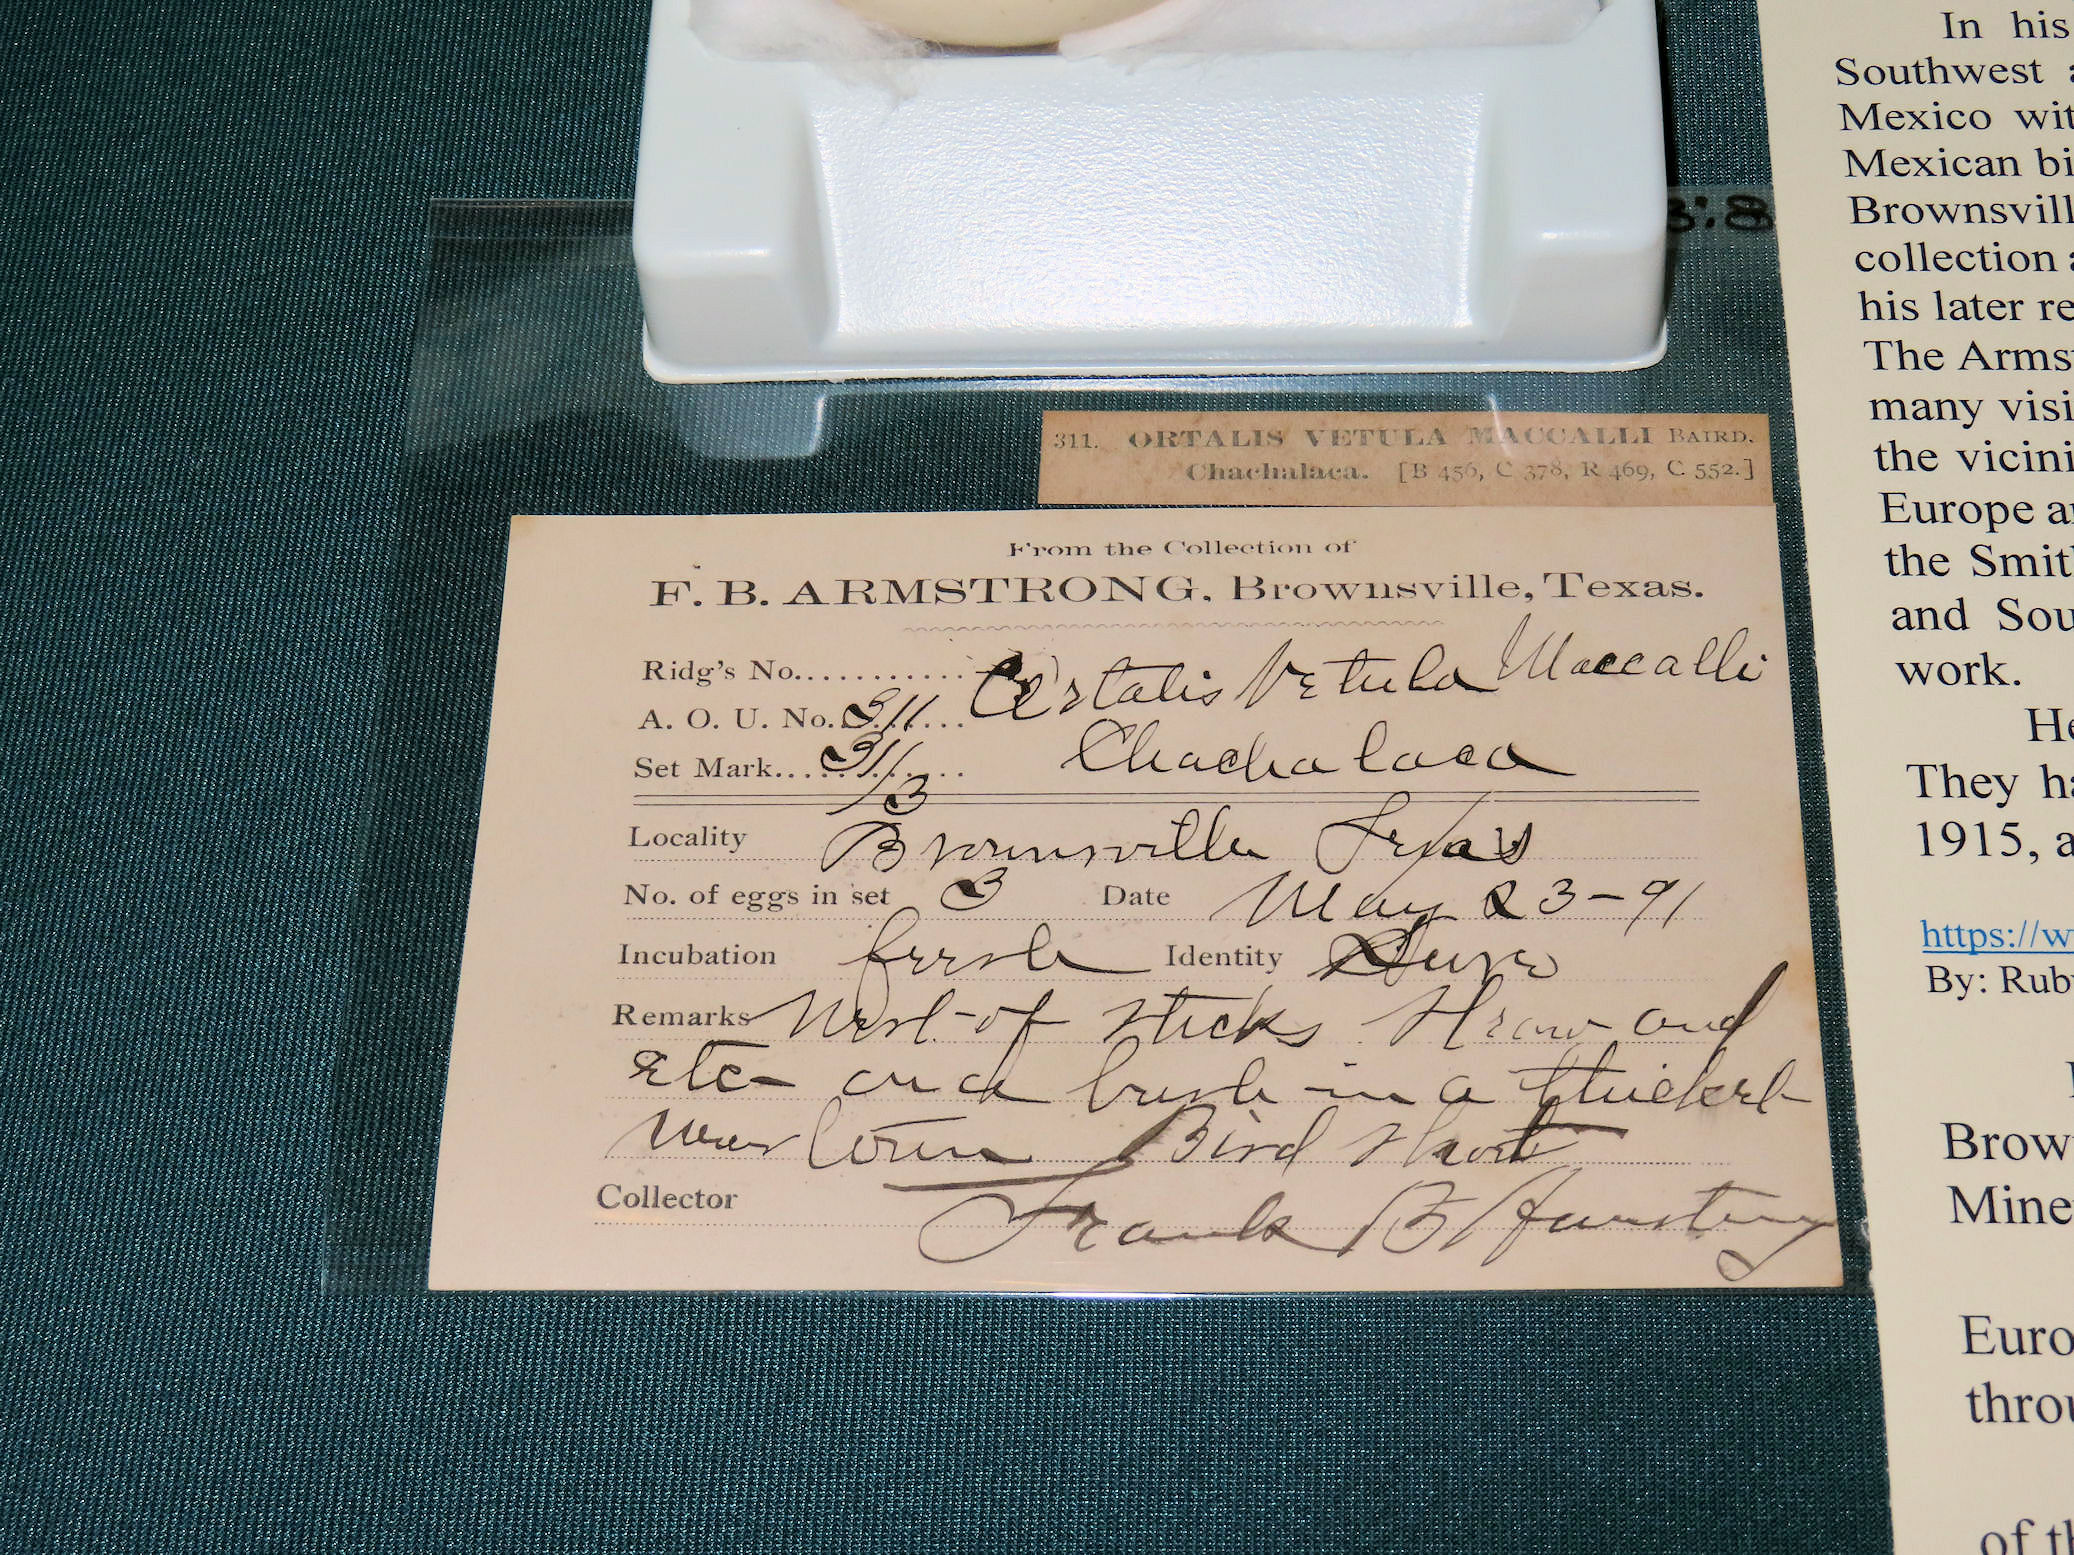 311. ORTALIS VETULA MACCALLI BAIRD.
Chachalaca. [B 456, C 378, R 469, C 552.]
From the Collection of
F. B. ARMSTRONG, Brownsville, Texas.
Ridg's No............ Ortalis Vetula Maccalli
A. O. U. No. 311
Set Mark 31/3 Chachalaca
Locality Brownsville Texas
No. of eggs in set 3 Date May 23-91
Incubation fresh Identity Sure
Remarks Nest of sticks straw and
etc- on a bush in a thicket
near town Bird shot
Collector Frank B Armstrong
In his
Southwest
Mexico
Mexican
collection
his later
The
many
the
Europe
the
and
work.
They
1915,
https://w
By:
of